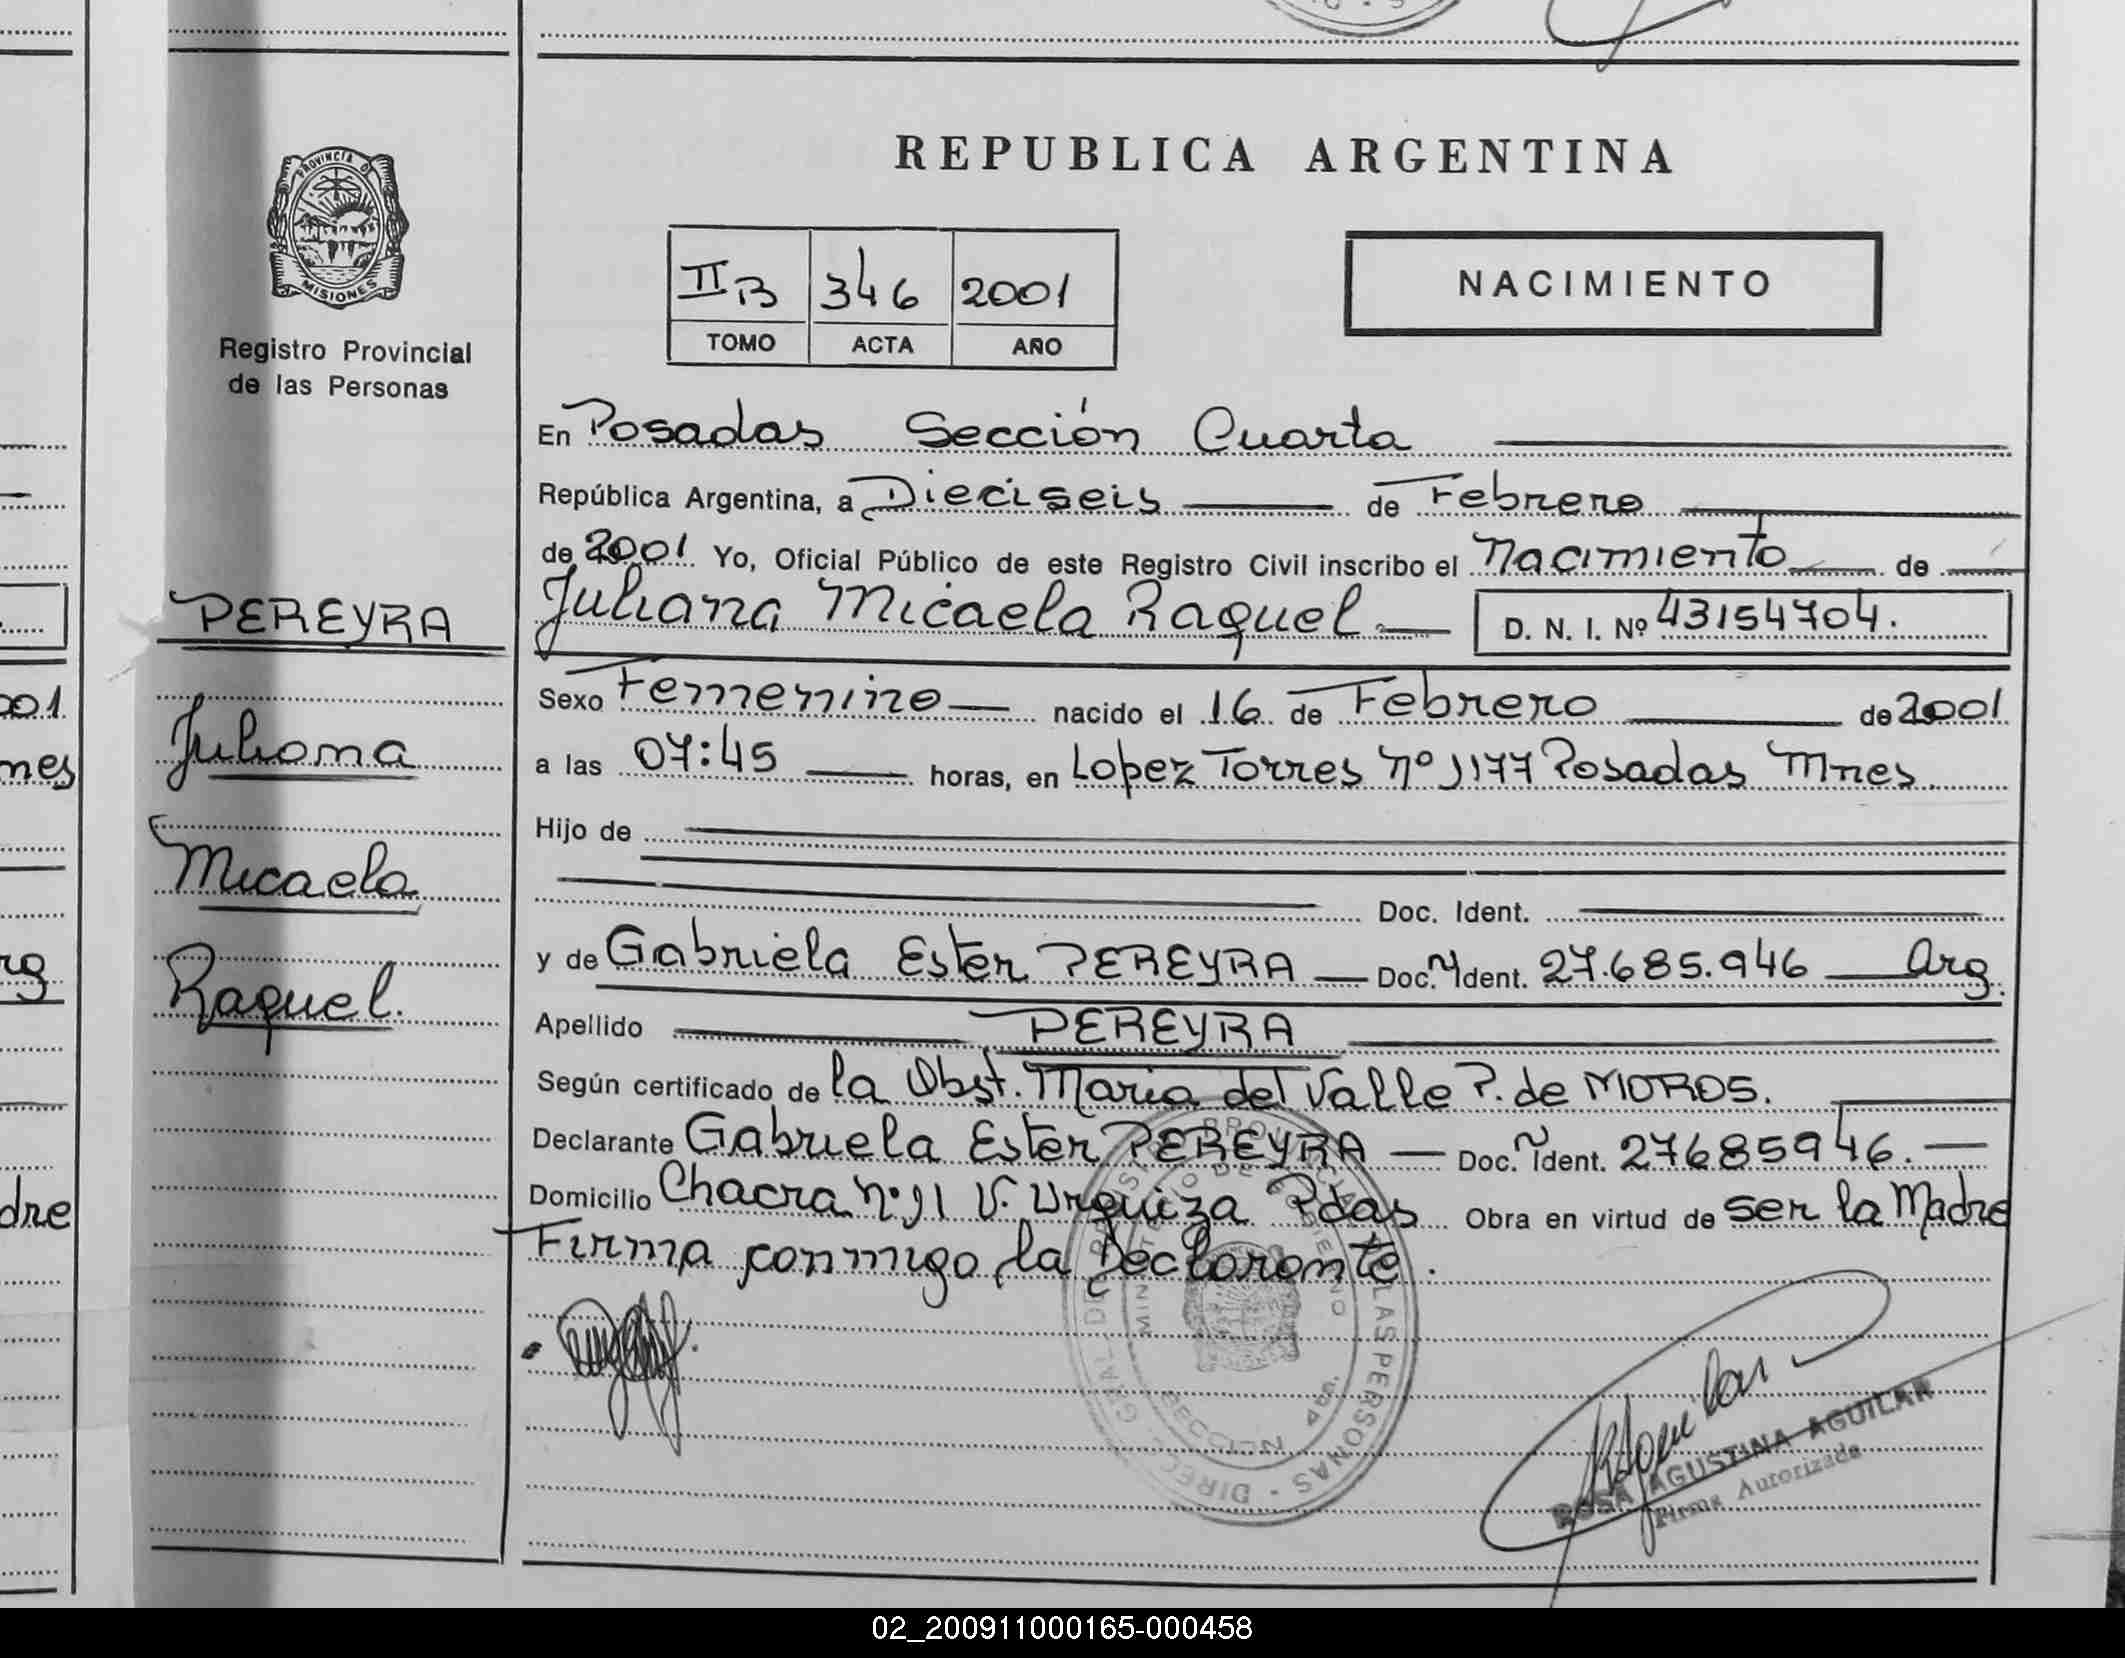 REPUBLICA ARGENTINA
PROVINCIA D
MISIONES
Registro Provincial
de las Personas
II B 346 2001
TOMO ACTA AÑO
NACIMIENTO
En Posadas Sección Cuarta
República Argentina, a Dieciseis de Febrero
de 2001 Yo, Oficial Público de este Registro Civil inscribo el Nacimiento de
Juliana Micaela Raquel.
D. N. I. Nº 43154704.
PEREYRA
Juliana
Micaela
Raquel.
Sexo Femenino nacido el 16 de Febrero de 2001
a las 07:45 horas, en Lopez Torres Nº 1177 Posadas Mnes.
Hijo de
Doc. Ident.
y de Gabriela Ester PEREYRA — Doc. Ident. 27.685.946 — Arg.
Apellido PEREYRA
Según certificado de la Obst. Maria del Valle P. de MOROS.
Declarante Gabriela Ester PEREYRA — Doc. Ident. 27685946. —
Domicilio Chacra Nº 91 V. Urquiza Pdas Obra en virtud de ser la Madre
Firma conmigo la Declarante.
DIREC. GRAL. DE REGISTRO PROVINCIAL DE LAS PERSONAS
MINISTERIO DE GOBIERNO
SECCION 4ta.
ROSA AGUSTINA AGUILAR
Firma Autorizada
001
nes
rg
dre
02_200911000165-000458